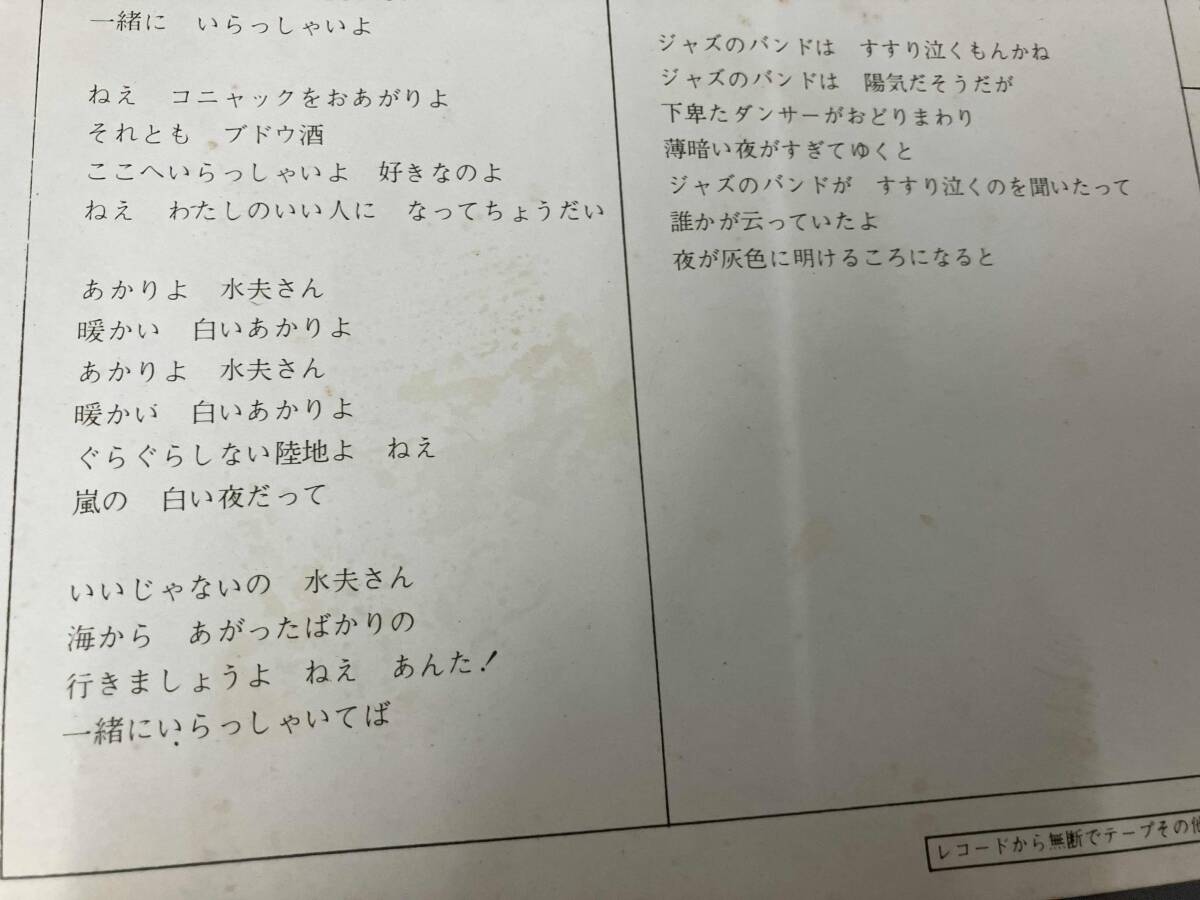 一緒に　いらっしゃいよ
ねえ　コニャックをおあがりよ
それとも　ブドウ酒
ここへいらっしゃいよ　好きなのよ
ねえ　わたしのいい人に　なってちょうだい
あかりよ　水夫さん
暖かい　白いあかりよ
あかりよ　水夫さん
暖かい　白いあかりよ
ぐらぐらしない陸地よ　ねえ
嵐の　白い夜だって
いいじゃないの　水夫さん
海から　あがったばかりの
行きましょうよ　ねえ　あんた！
一緒にいらっしゃいてば
ジャズのバンドは　すすり泣くもんかね
ジャズのバンドは　陽気だそうだが
下卑たダンサーがおどりまわり
薄暗い夜がすぎてゆくと
ジャズのバンドが　すすり泣くのを聞いたって
誰かが云っていたよ
夜が灰色に明けるころになると
レコードから無断でテープその他